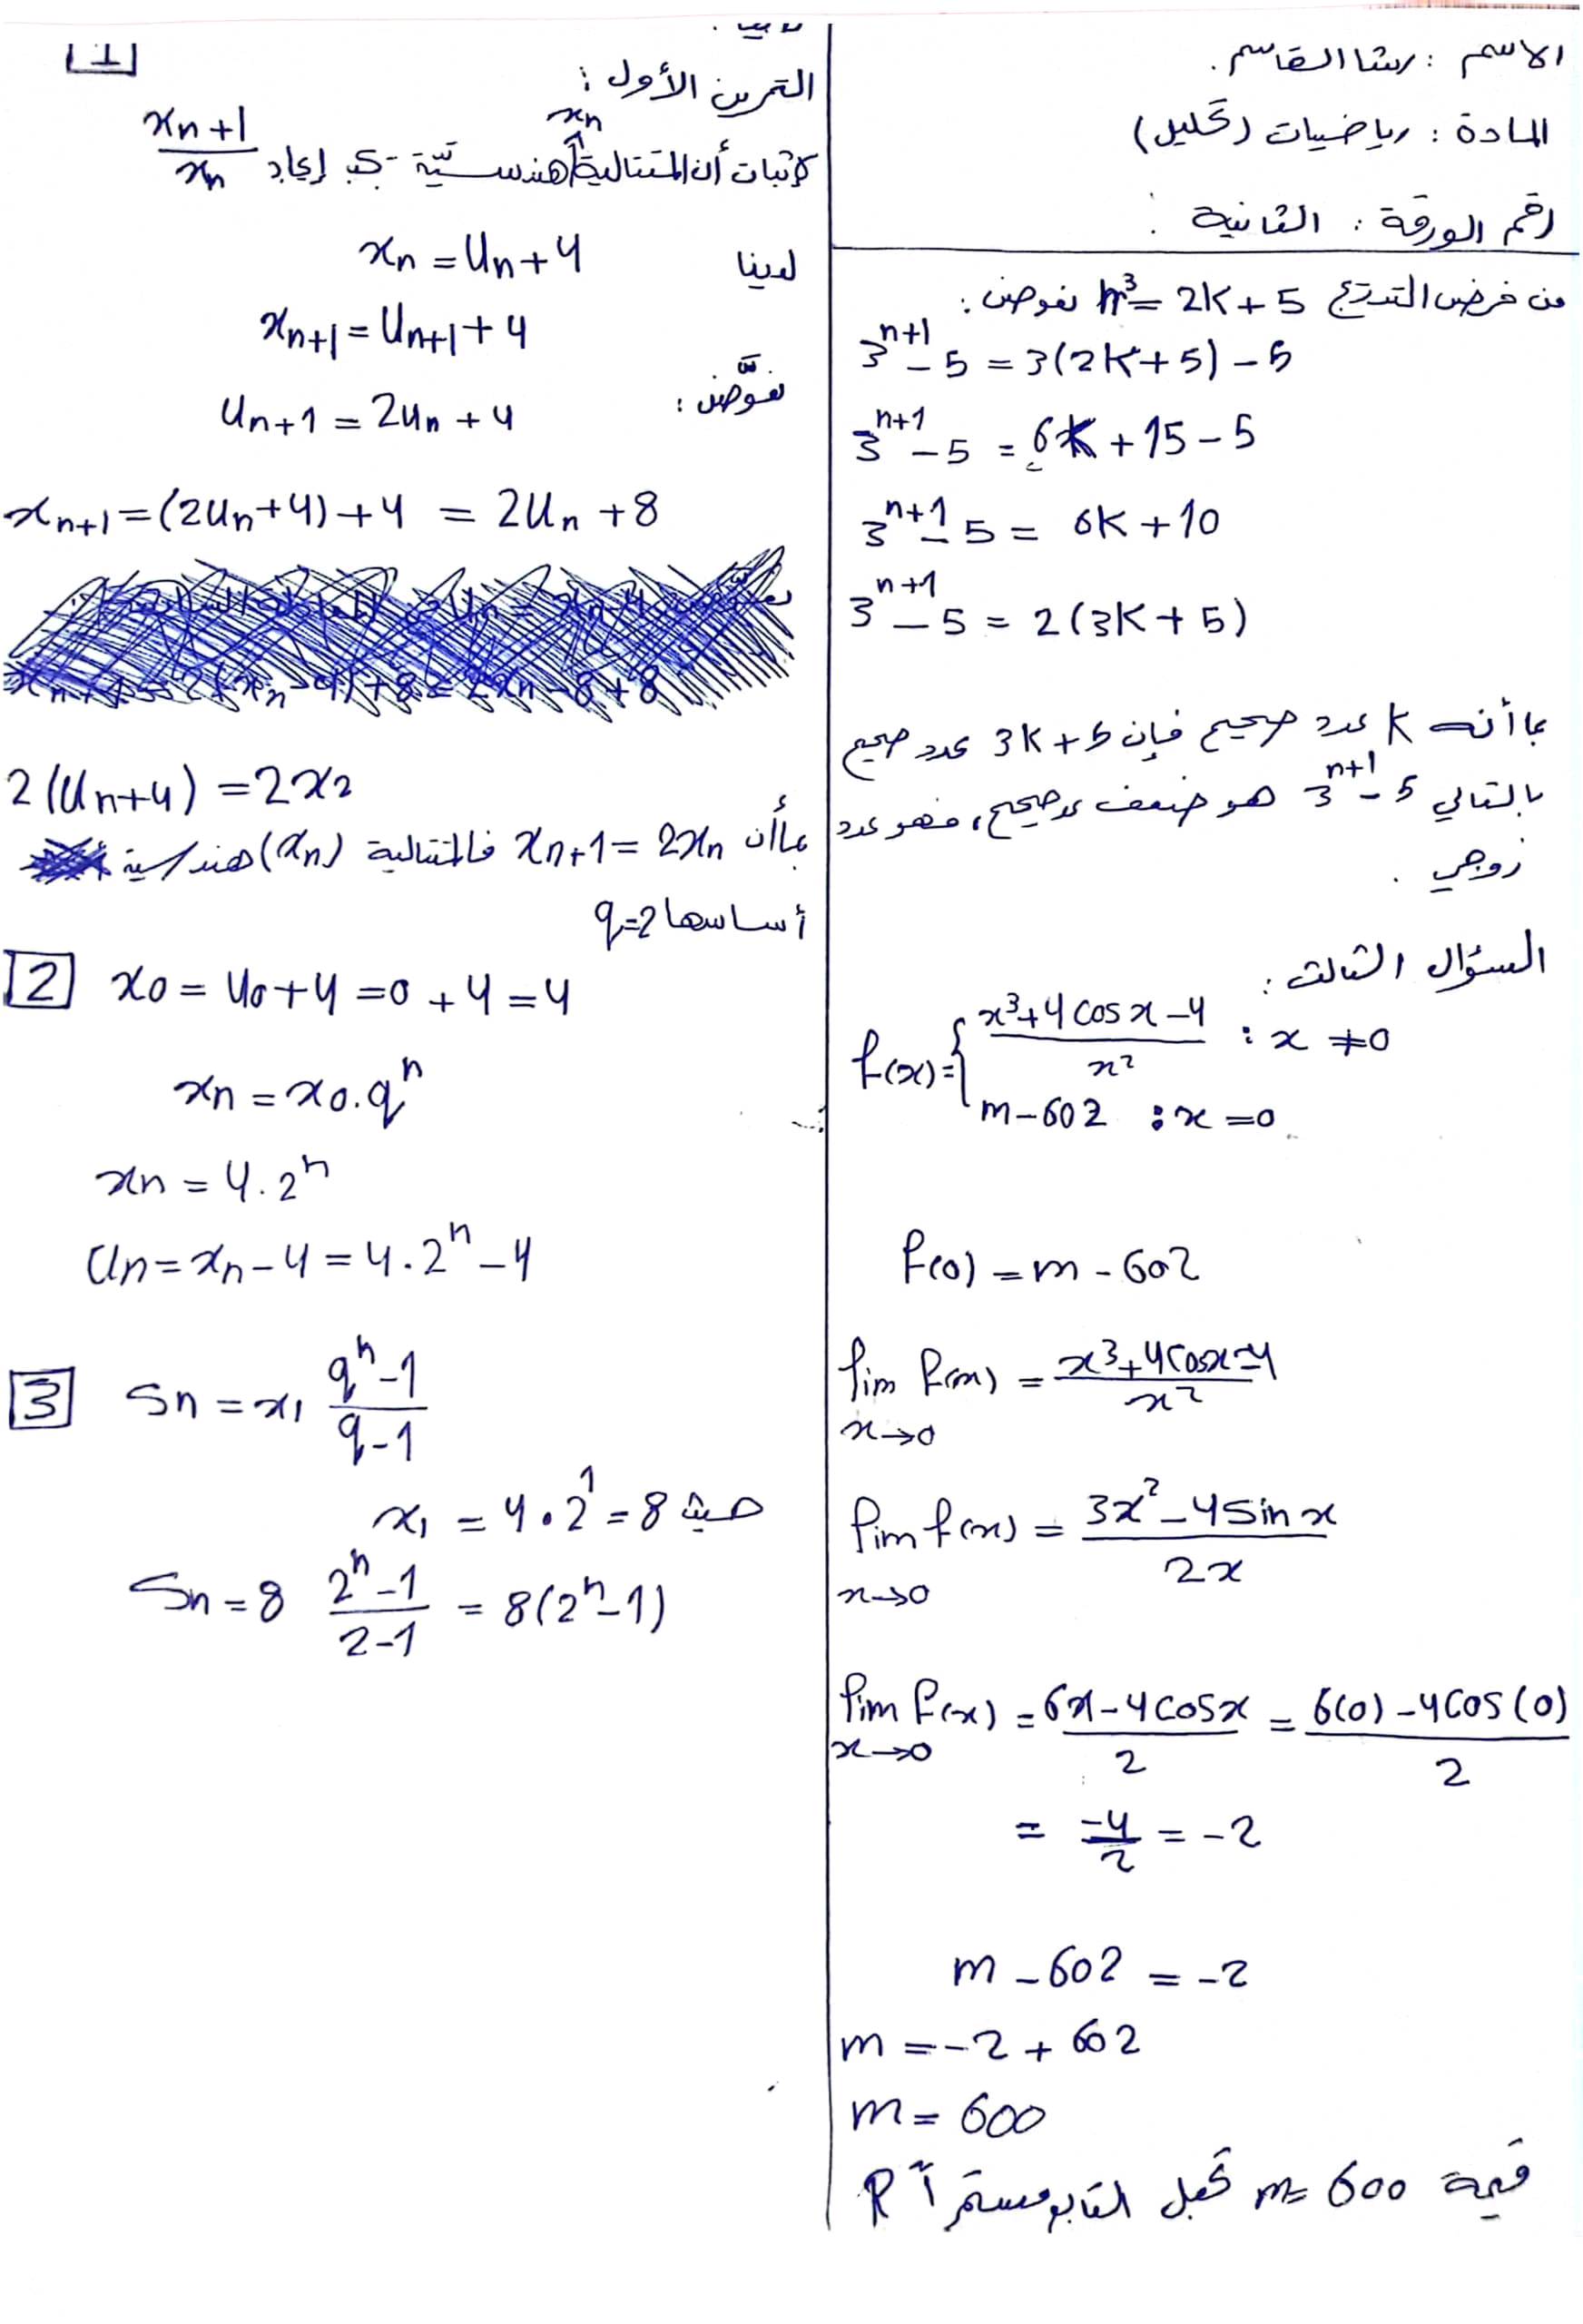 الاسم : رشا القاسم.
المادة : رياضيات (تحليل)
رقم الورقة : الثانية
من فرض التدرج 3ⁿ = 2K + 5 نعوض :
3ⁿ⁺¹ - 5 = 3(2K + 5) - 5
3ⁿ⁺¹ - 5 = 6K + 15 - 5
3ⁿ⁺¹ - 5 = 6K + 10
3ⁿ⁺¹ - 5 = 2(3K + 5)
بما أنه K عدد صحيح فإن 3K + 5 عدد صحيح
بالتالي 3ⁿ⁺¹ - 5 هو ضعف عدد صحيح، فهو عدد
زوجي .
السؤال الثالث :
f(x) = { (x³ + 4 cos x - 4) / x² : x ≠ 0
m - 602 : x = 0
f(0) = m - 602
lim f(x) = (x³ + 4 cos x - 4) / x²
x→0
lim f(x) = (3x² - 4 sin x) / 2x
x→0
lim f(x) = (6x - 4 cos x) / 2 = (6(0) - 4 cos(0)) / 2
x→0
= -4/2 = -2
m - 602 = -2
m = -2 + 602
m = 600
قيمة m = 600 تجعل التابع مستمر
[1]
التمرين الأول :
لإثبات أن المتتالية xn هندسية يجب إيجاد xn+1 / xn
لدينا xn = Un + 4
xn+1 = Un+1 + 4
نعوّض : Un+1 = 2Un + 4
xn+1 = (2Un + 4) + 4 = 2Un + 8
2(Un + 4) = 2x2
بما أن xn+1 = 2xn فالمتتالية (xn) هندسية
أساسها q = 2
[2] x0 = U0 + 4 = 0 + 4 = 4
xn = x0 . qⁿ
xn = 4 . 2ⁿ
Un = xn - 4 = 4 . 2ⁿ - 4
[3] Sn = x1 (qⁿ - 1) / (q - 1)
حيث x1 = 4 . 2¹ = 8
Sn = 8 (2ⁿ - 1) / (2 - 1) = 8(2ⁿ - 1)